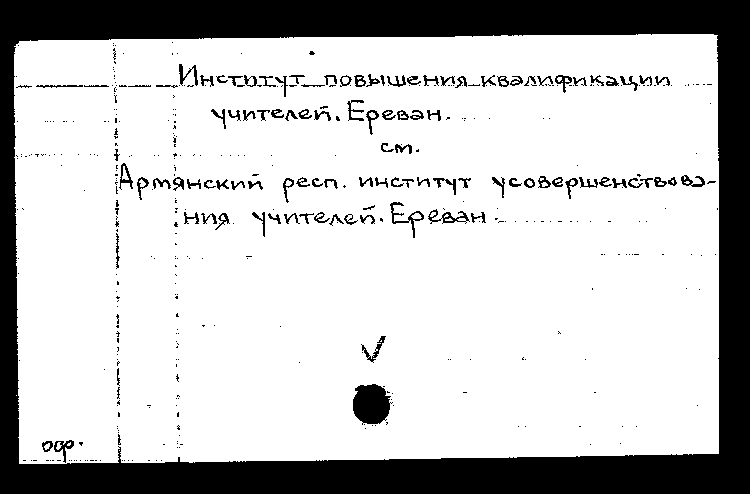 Институт повышения квалификации
учителей. Ереван.
см.
Армянский респ. институт усовершенствова-
ния учителей. Ереван.